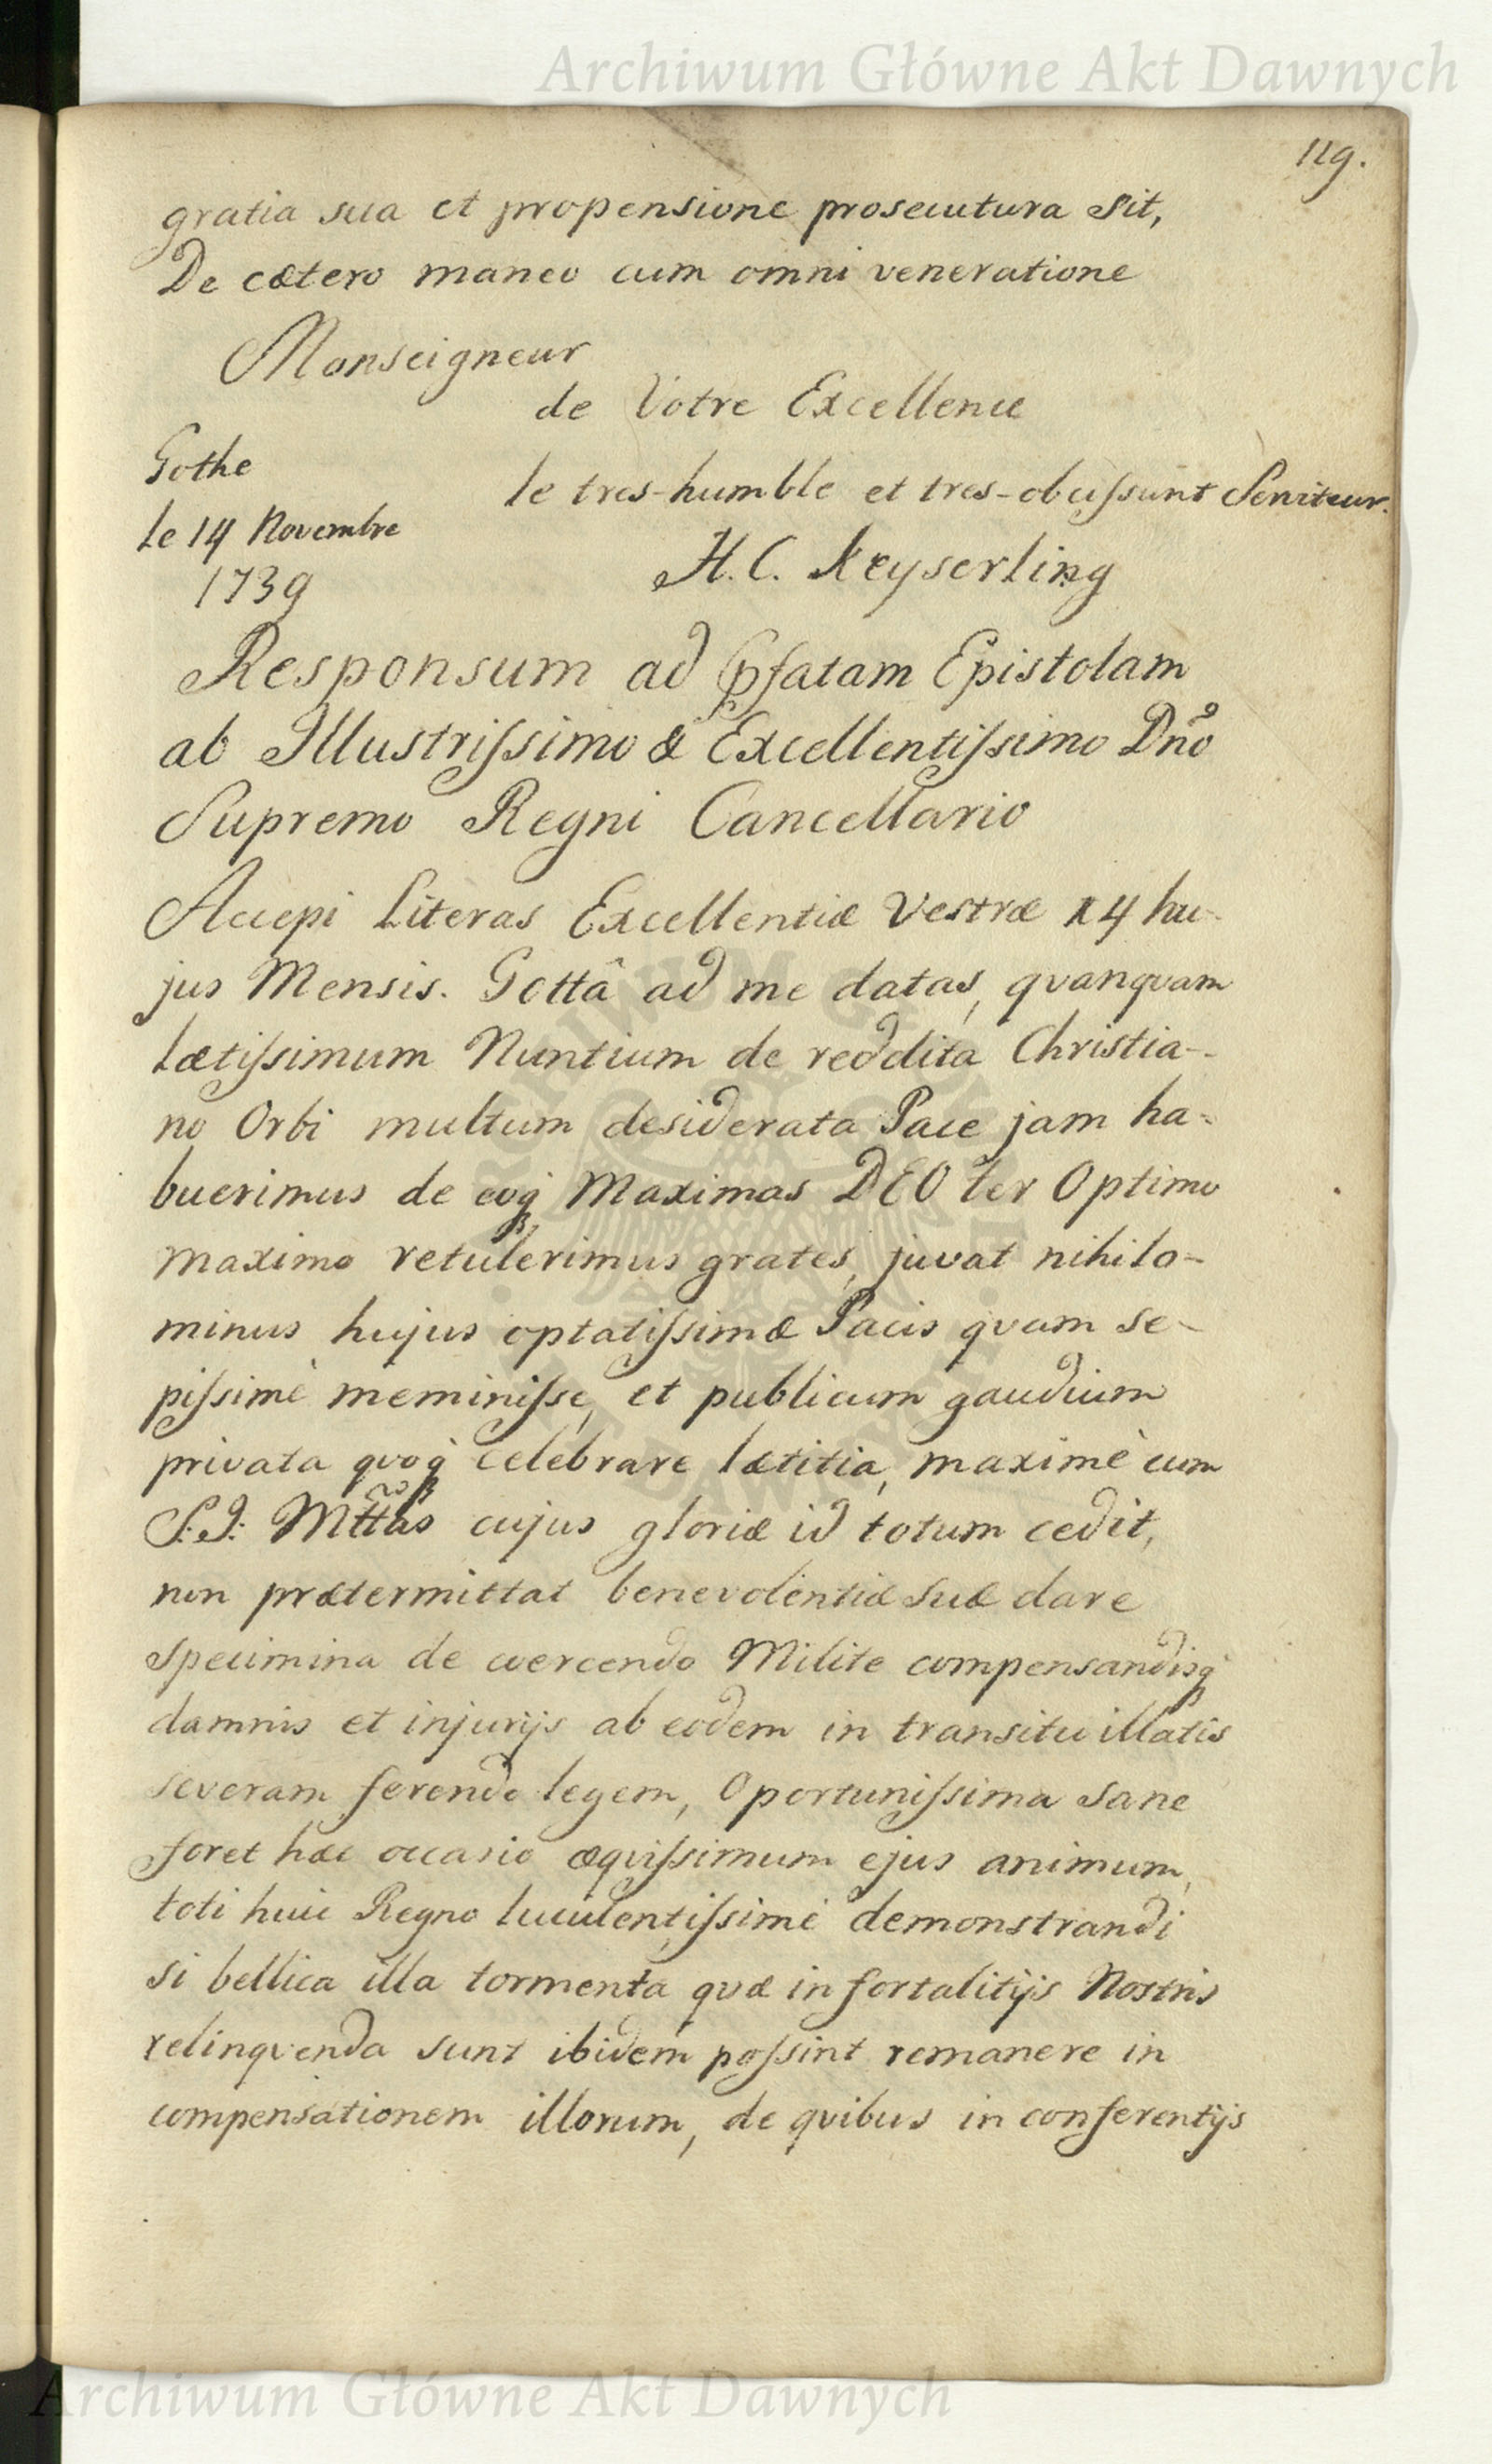 Archiwum Główne Akt Dawnych
119.
gratia sua et propensione prosecutura sit,
De cætero maneo cum omni veneratione
Monseigneur
de Votre Excellence
Gothe
le tres-humble et tres-obeissant Serviteur.
le 14 Novembre
H. C. Keyserling
1739
Responsum ad pfatam Epistolam
ab Illustrissimo & Excellentissimo Dno
Supremo Regni Cancellario
Accepi Literas Excellentiæ Vestræ 14 hu-
jus Mensis. Gottâ ad me datas, qvanqvam
lætissimum Nuntium de reddita Christia-
no Orbi multum desiderata Pace jam ha-
buerimus de eoq Maximas DEO ter Optimo
maximo retulerimus grates, juvat nihilo-
minus hujus optatissimæ Pacis qvam se-
pissimè meminisse, et publicum gaudium
privata qvoq celebrare lætitia, maximè cum
S. I. Mttas cujus gloriæ id totum cedit,
non prætermittat benevolentiæ suæ dare
specimina de coercendo Milite compensandisq
damnis et injurijs ab eodem in transitu illatis
severam ferendo legem, Oportunissima sane
foret hæc occasio æqvissimum ejus animum,
toti huic Regno luculentissimè demonstrandi
si bellica illa tormenta qvæ in fortalitijs Nostris
relinqvenda sunt ibidem possint remanere in
compensationem illorum, de qvibus in conferentijs
Archiwum Główne Akt Dawnych